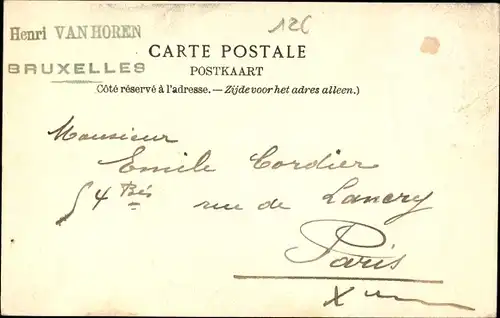 Henri VAN HOREN
BRUXELLES
12€
CARTE POSTALE
POSTKAART
(Côté réservé à l'adresse. — Zijde voor het adres alleen.)
Monsieur
Emile Cordier
54 Bis rue de Lancry
Paris
Xme